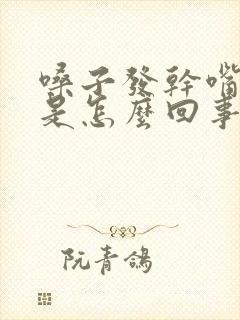 嗓子發幹嘴
是怎麼回事
阮青鴿